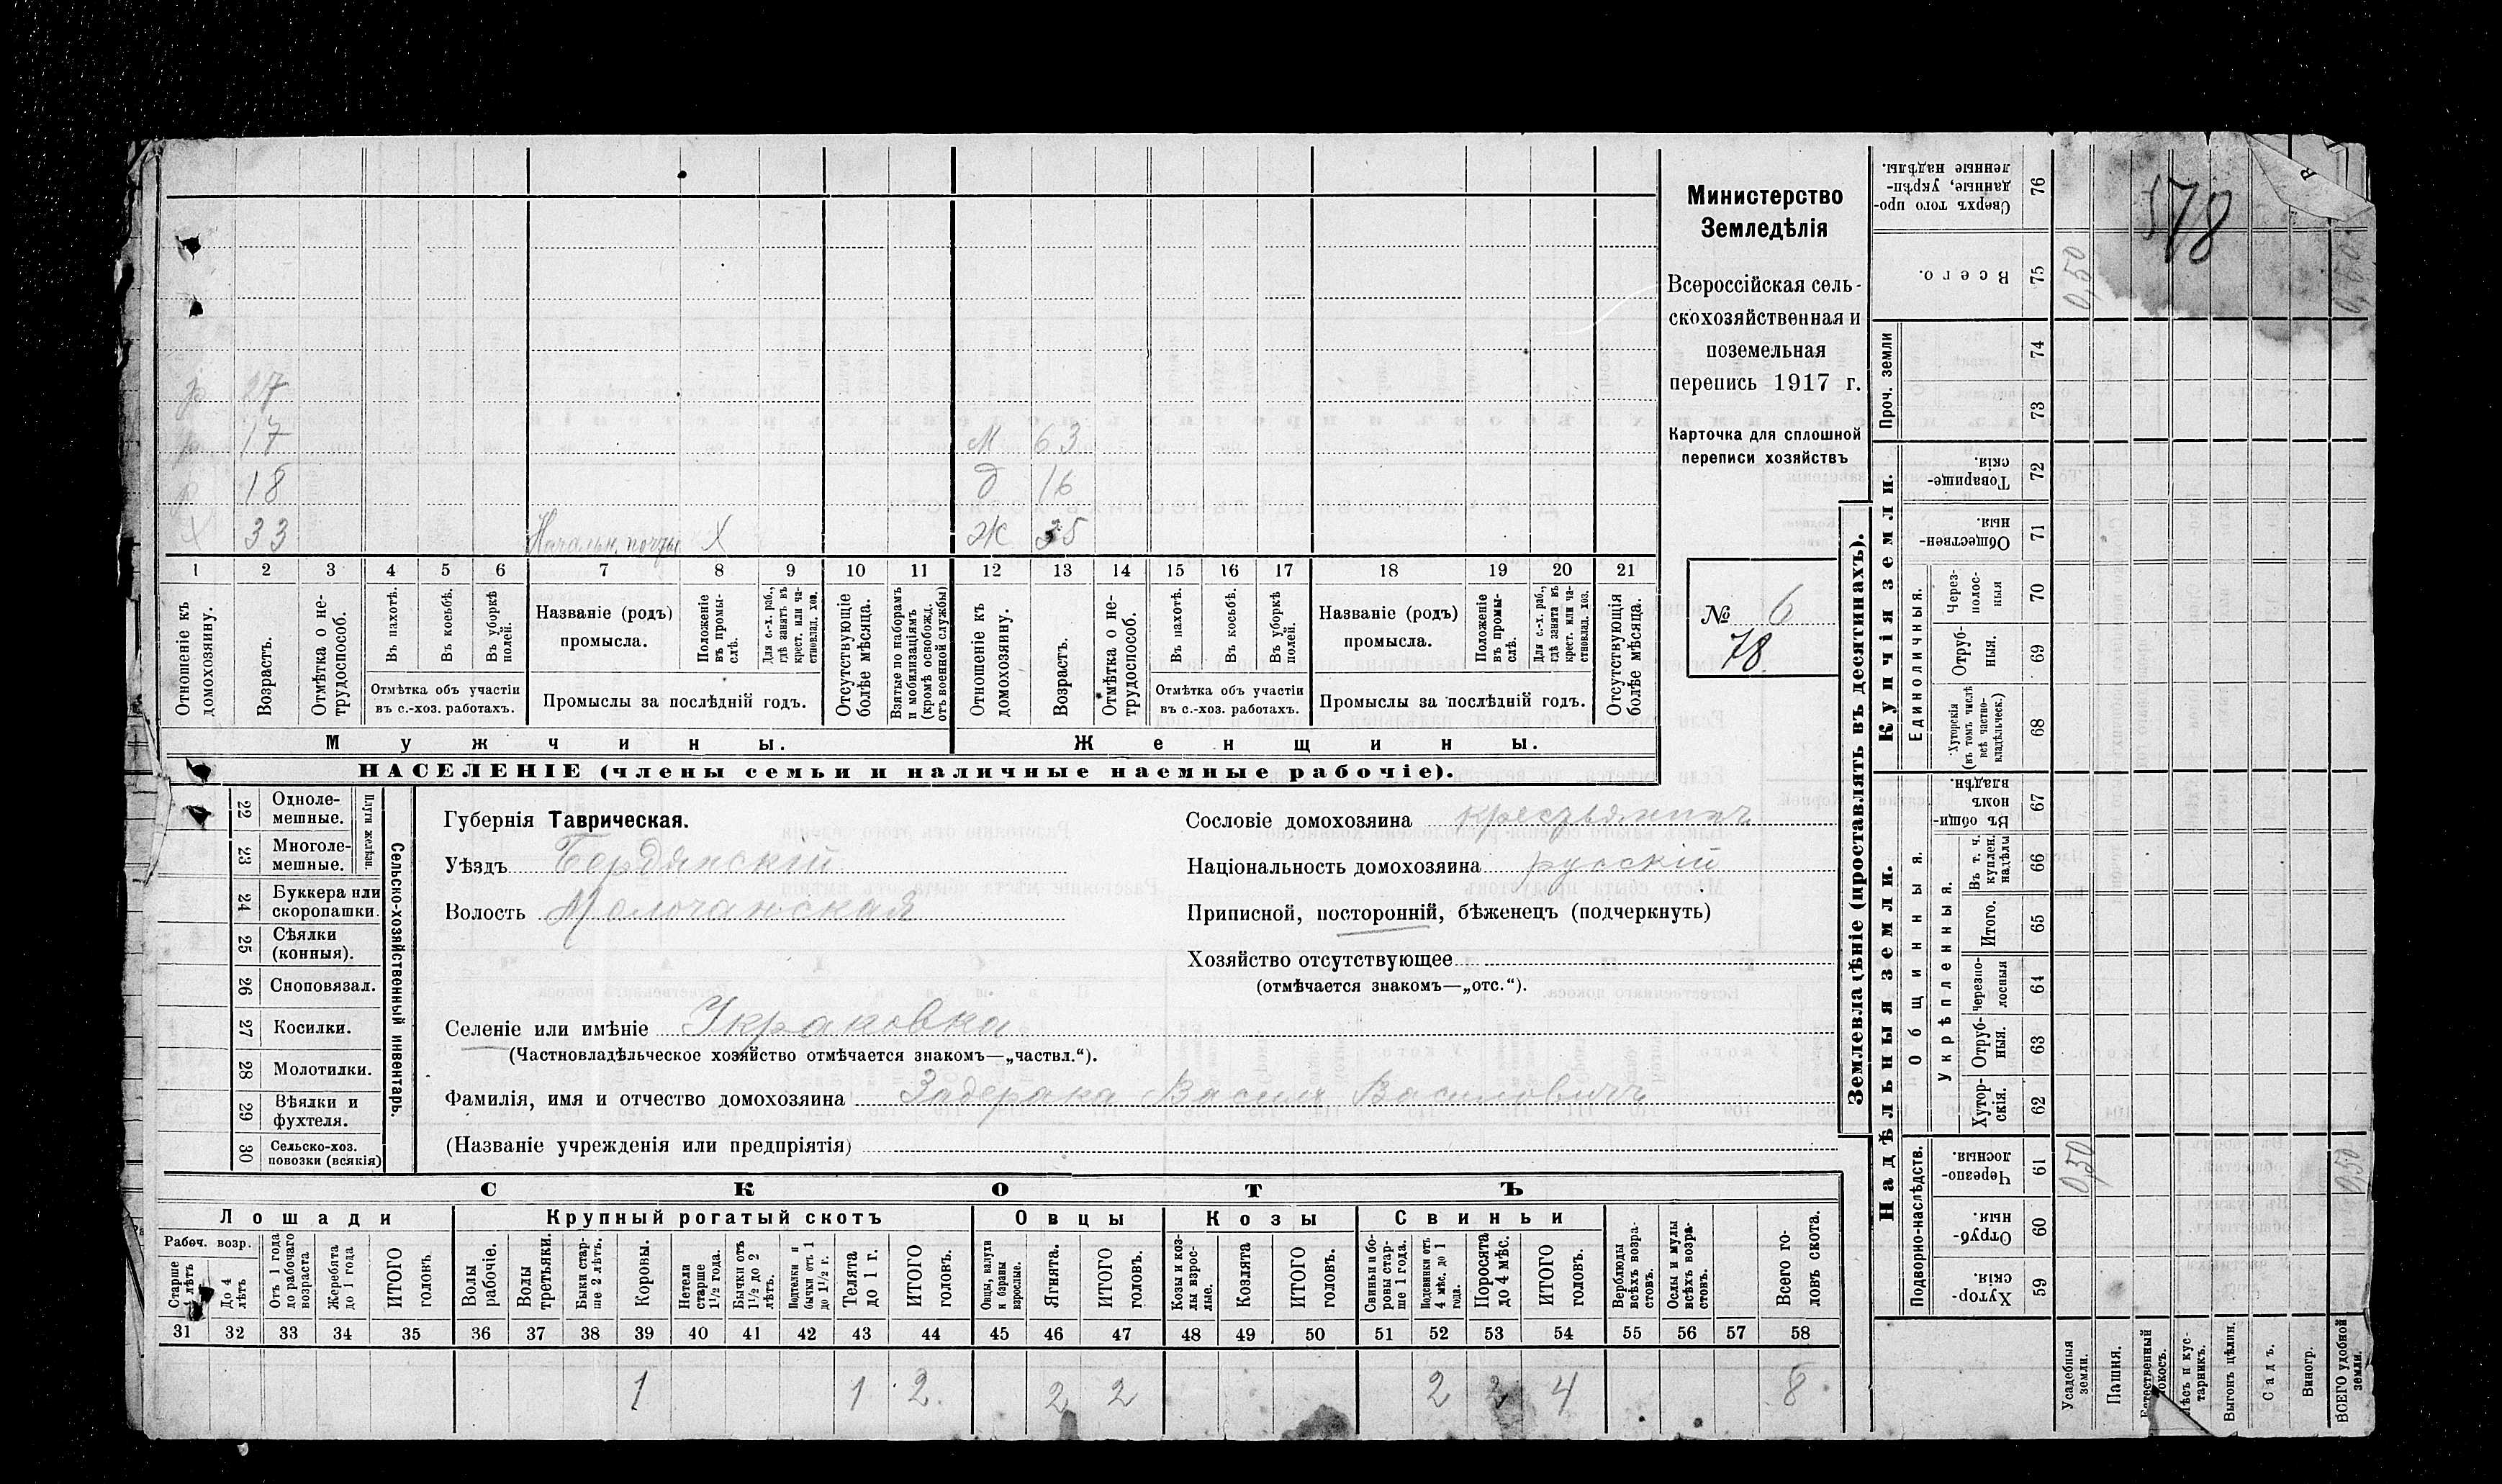 Министерство
Земледѣлія
Всероссійская сель-
скохозяйственная и
поземельная
перепись 1917 г.
Карточка для сплошной
переписи хозяйствъ
№ 6
78.
р 27
р 17 М 63
р 18 д 16
X 33 Начальн. почты X Ж 35
1 2 3 4 5 6 7 8 9 10 11 12 13 14 15 16 17 18 19 20 21
Отношеніе къ домохозяину.
Возрастъ.
Отмѣтка о не-трудоспособ.
Въ пахотѣ.
Въ косьбѣ.
Въ уборкѣ полей.
Отмѣтка объ участіи
въ с.-хоз. работахъ.
Названіе (родъ)
промысла.
Положеніе въ промы-слѣ.
Для с.-х. раб., гдѣ занятъ въ крест. или ча-стновлад. хоз.
Промыслы за послѣдній годъ.
Отсутствующіе болѣе мѣсяца.
Взятые по наборамъ и мобилизаціямъ (кромѣ освобожд. отъ военной службы)
Отношеніе къ домохозяину.
Возрастъ.
Отмѣтка о не-трудоспособ.
Въ пахотѣ.
Въ косьбѣ.
Въ уборкѣ полей.
Отмѣтка объ участіи
въ с.-хоз. работахъ.
Названіе (родъ)
промысла.
Положеніе въ промы-слѣ.
Для с.-х. раб., гдѣ занятъ въ крест. или ча-стновлад. хоз.
Промыслы за послѣдній годъ.
Отсутствующія болѣе мѣсяца.
Мужчины. Женщины.
НАСЕЛЕНІЕ (члены семьи и наличные наемные рабочіе).
22 Одноле-мешные.
23 Многоле-мешные.
Плуги желѣзн.
24 Буккера или скоропашки.
25 Сѣялки (конныя).
26 Сноповязал.
27 Косилки.
28 Молотилки.
29 Вѣялки и фухтеля.
30 Сельско-хоз. повозки (всякія)
Сельско-хозяйственный инвентарь.
Губернія Таврическая.
Уѣздъ Бердянскій
Волость Молочанская
Сословіе домохозяина крестьянинъ
Національность домохозяина русскій
Приписной, посторонній, бѣженецъ (подчеркнуть)
Хозяйство отсутствующее
(отмѣчается знакомъ—„отс.“).
Селеніе или имѣніе
(Частновладѣльческое хозяйство отмѣчается знакомъ—„частвл.“).
Фамилія, имя и отчество домохозяина Задерака Васил Василовичъ
(Названіе учрежденія или предпріятія)
СКОТЪ
Лошади Крупный рогатый скотъ Овцы Козы Свиньи
Рабоч. возр.
Старше 4 лѣтъ
До 4 лѣтъ
Отъ 1 года до рабочаго возраста
Жеребята до 1 года
ИТОГО головъ
Волы рабочіе.
Волы третьяки.
Быки стар-ше 2 лѣтъ.
Коровы.
Нетели старше 1½ года.
Бычки отъ 1½ до 2 лѣтъ.
Подтелки и бычки отъ 1 до 1½ г.
Телята до 1 г.
ИТОГО головъ.
Овцы, валухи и бараны взрослые.
Ягнята.
ИТОГО головъ.
Козы и коз-лы взрос-лые.
Козлята
ИТОГО головъ.
Свиньи и бо-ровы стар-ше 1 года.
Подсвинки отъ 4 мѣс. до 1 года.
Поросята до 4 мѣс.
ИТОГО головъ.
Верблюды всѣхъ возра-стовъ.
Ослы и мулы всѣхъ возра-стовъ.
Всего го-ловъ скота.
31 32 33 34 35 36 37 38 39 40 41 42 43 44 45 46 47 48 49 50 51 52 53 54 55 56 57 58
1 1 2 2 2 2 2 4 8
Землевладѣніе (проставлять въ десятинахъ).
Надѣльныя земли. Купчія земли. Проч. земли
Подворно-наслѣдств. Общинныя. Укрѣпленныя. Единоличныя.
59 Хутор-скія.
60 Отруб-ныя.
61 Черезпо-лосныя.
62 Хутор-скія.
63 Отруб-ныя.
64 Черезпо-лосныя
65 Итого.
66 Въ т. ч. куплен. надѣлы
67 Въ общи-номъ владѣн.
68 Хуторскія (въ томъ числѣ всѣ частно-владѣльческ.)
69 Отруб-ныя.
70 Через-полос-ныя
71 Обществен-ныя.
72 Товарище-скія.
73
74
75 Всего.
76 Сверхъ того про-данные, укрѣп-ленные надѣлы.
Усадебныя земли.
Пашня.
Естественный покосъ.
Лѣсъ и кус-тарникъ.
Выгонъ цѣлин.
Садъ.
Виногр.
ВСЕГО удобной земли.
0,50 0,50
0,50 0,50
78